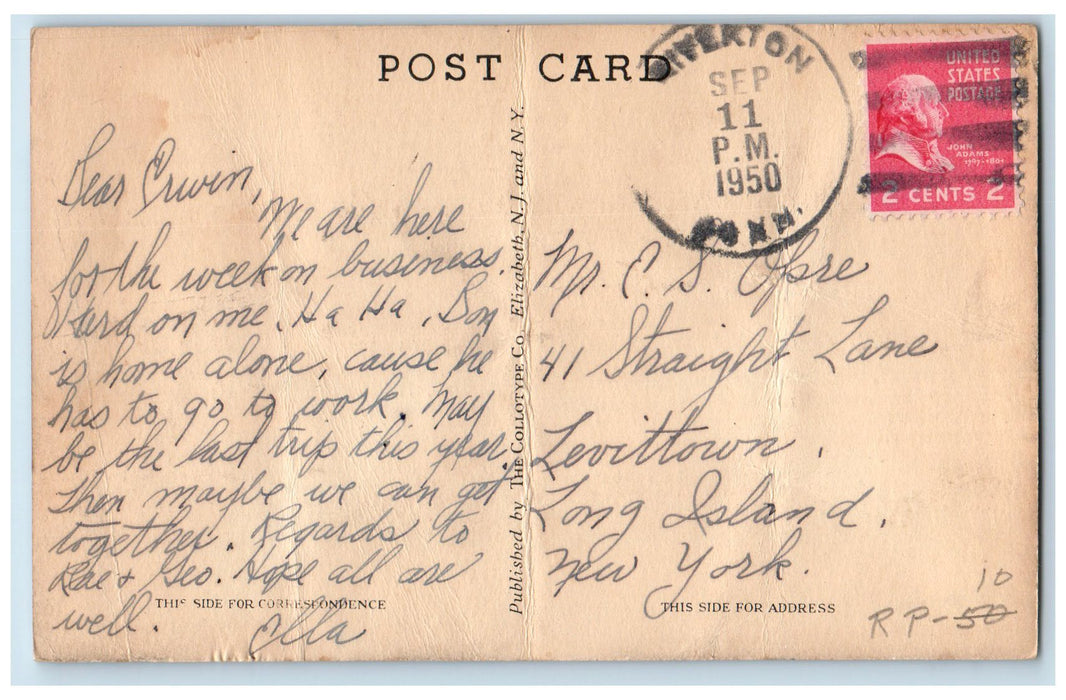 POST CARD
RIVERTON
SEP
11
P.M.
1950
CONN.
UNITED
STATES
POSTAGE
JOHN
ADAMS
1797-1801
2 CENTS 2
Dear Erwin,
We are here
for the week on business.
Hard on me. Ha Ha. Son
is home alone, cause he
has to go to work. May
be the last trip this year.
Then maybe we can get
together. Regards to
Rae & Geo. Hope all are
well.
Ella
THIS SIDE FOR CORRESPONDENCE
Published by THE COLLOTYPE Co. Elizabeth, N.J. and N.Y.
Mr. E. S. Opre
41 Straight Lane
Levittown,
Long Island,
New York.
THIS SIDE FOR ADDRESS
10
RP-50